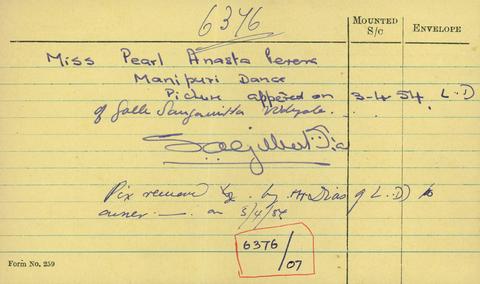 6376
MOUNTED
S/C
ENVELOPE
Miss Pearl Anasta Perera
Manipuri Dance
Picture appered on 3-4-54 L.D
of Galle Sangamitta
Pix by Dias of L.D) to
owner on 5/4/54
6376/07
Form No. 259